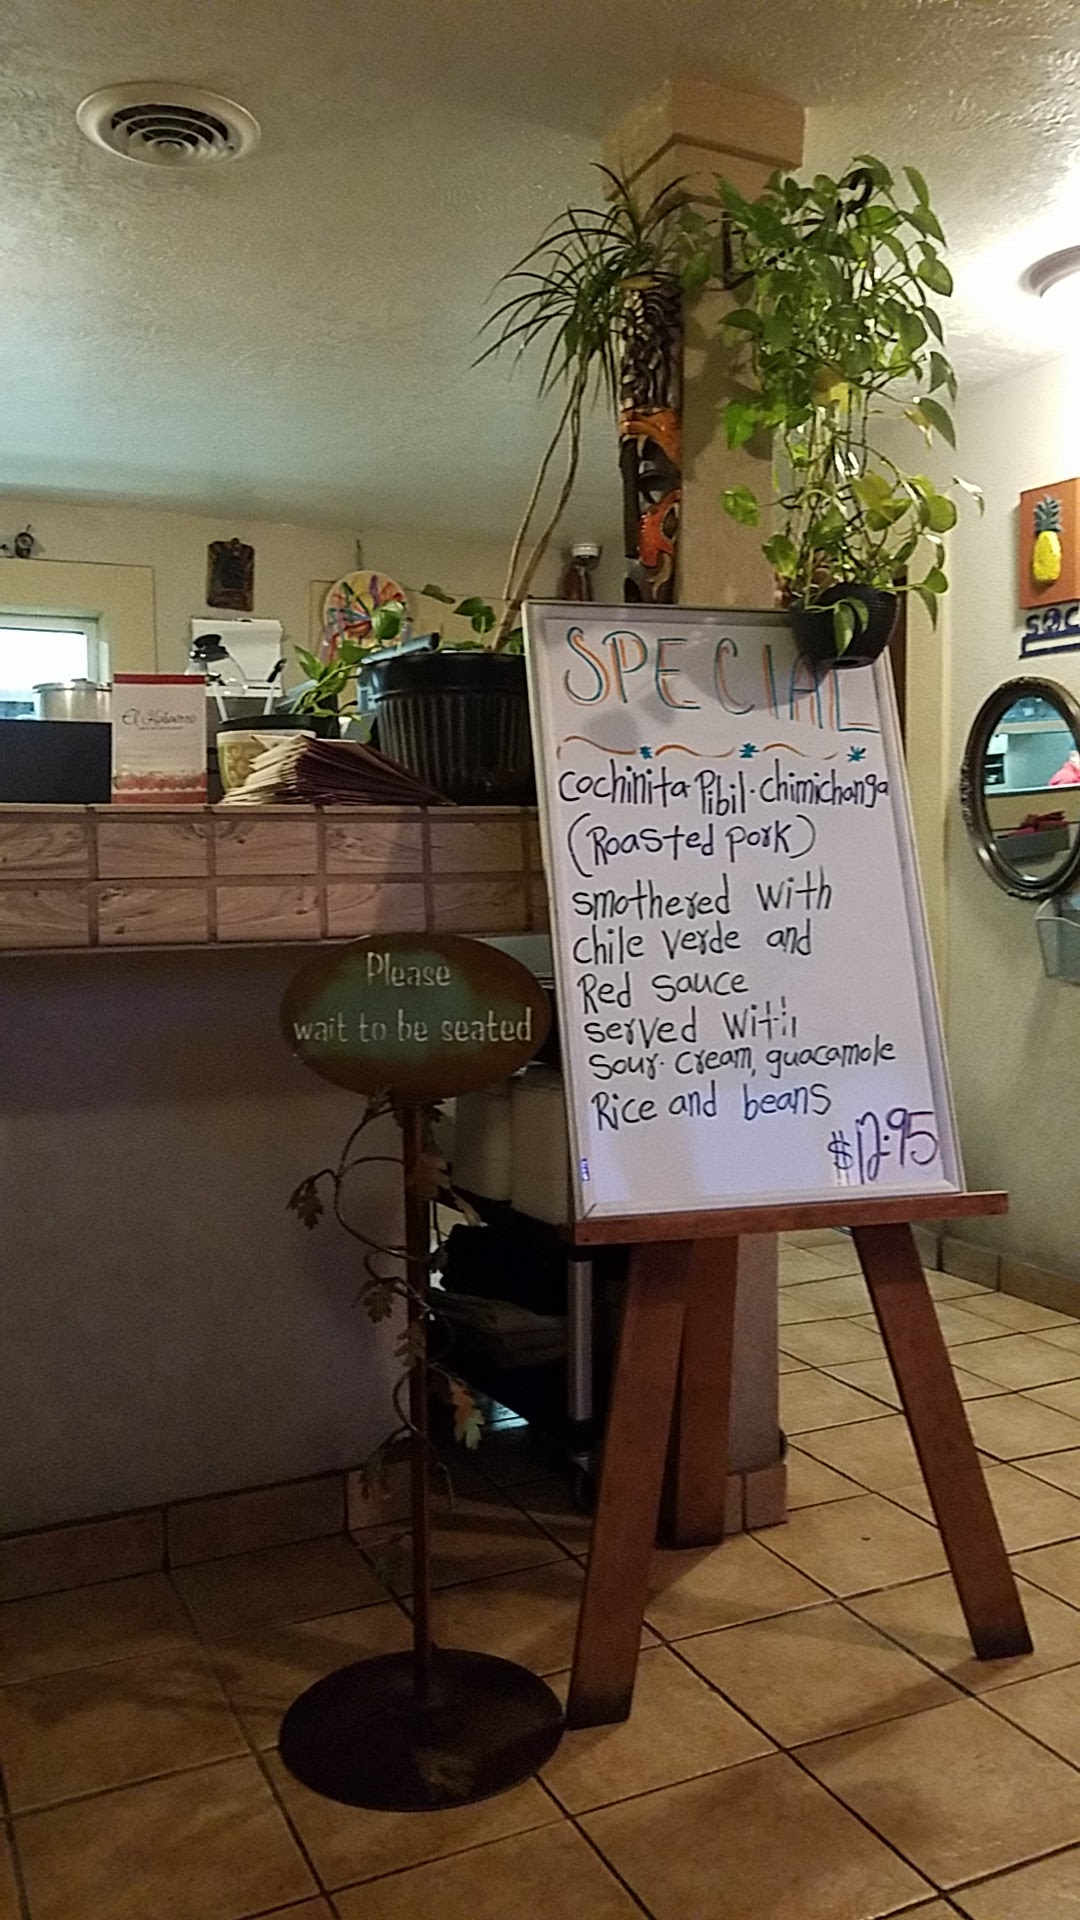 SPECIAL
Cochinita Pibil. Chimichanga
(Roasted pork)
smothered with
chile verde and
Red sauce
served with
sour. cream, guacamole
Rice and beans
$12.95
Please
wait to be seated
El Habanero